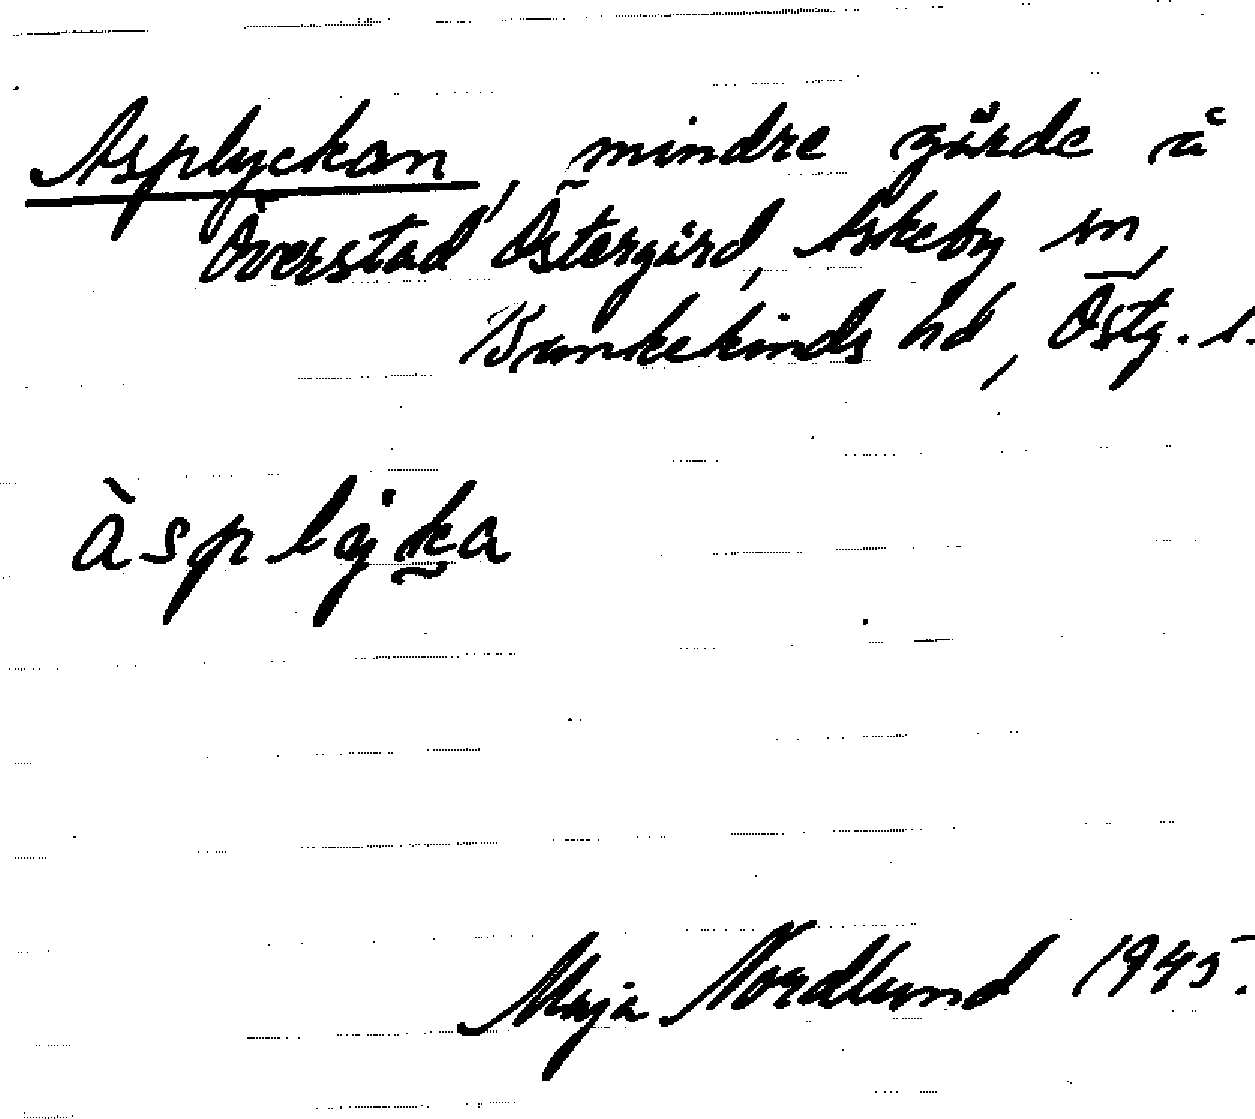 Asplyckan, mindre gärde å
Överstad Östergård, Askeby sn,
Bankekinds hd, Östg. l.
àsplẏka
Maja Nordlund 1945.